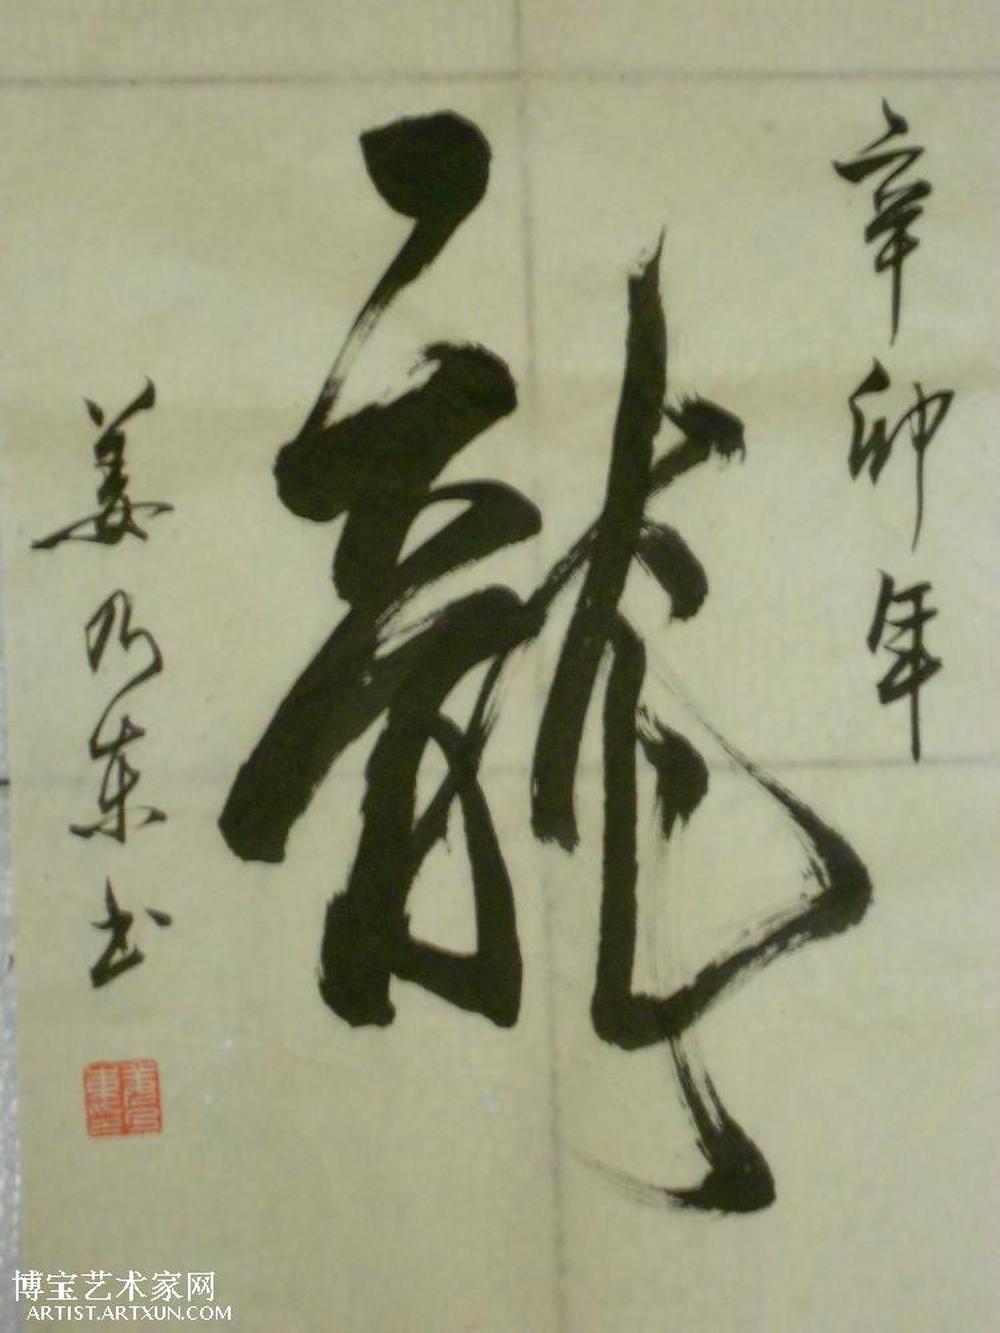 辛卯年
龍
姜乃東书
博宝艺术家网
ARTIST.ARTXUN.COM